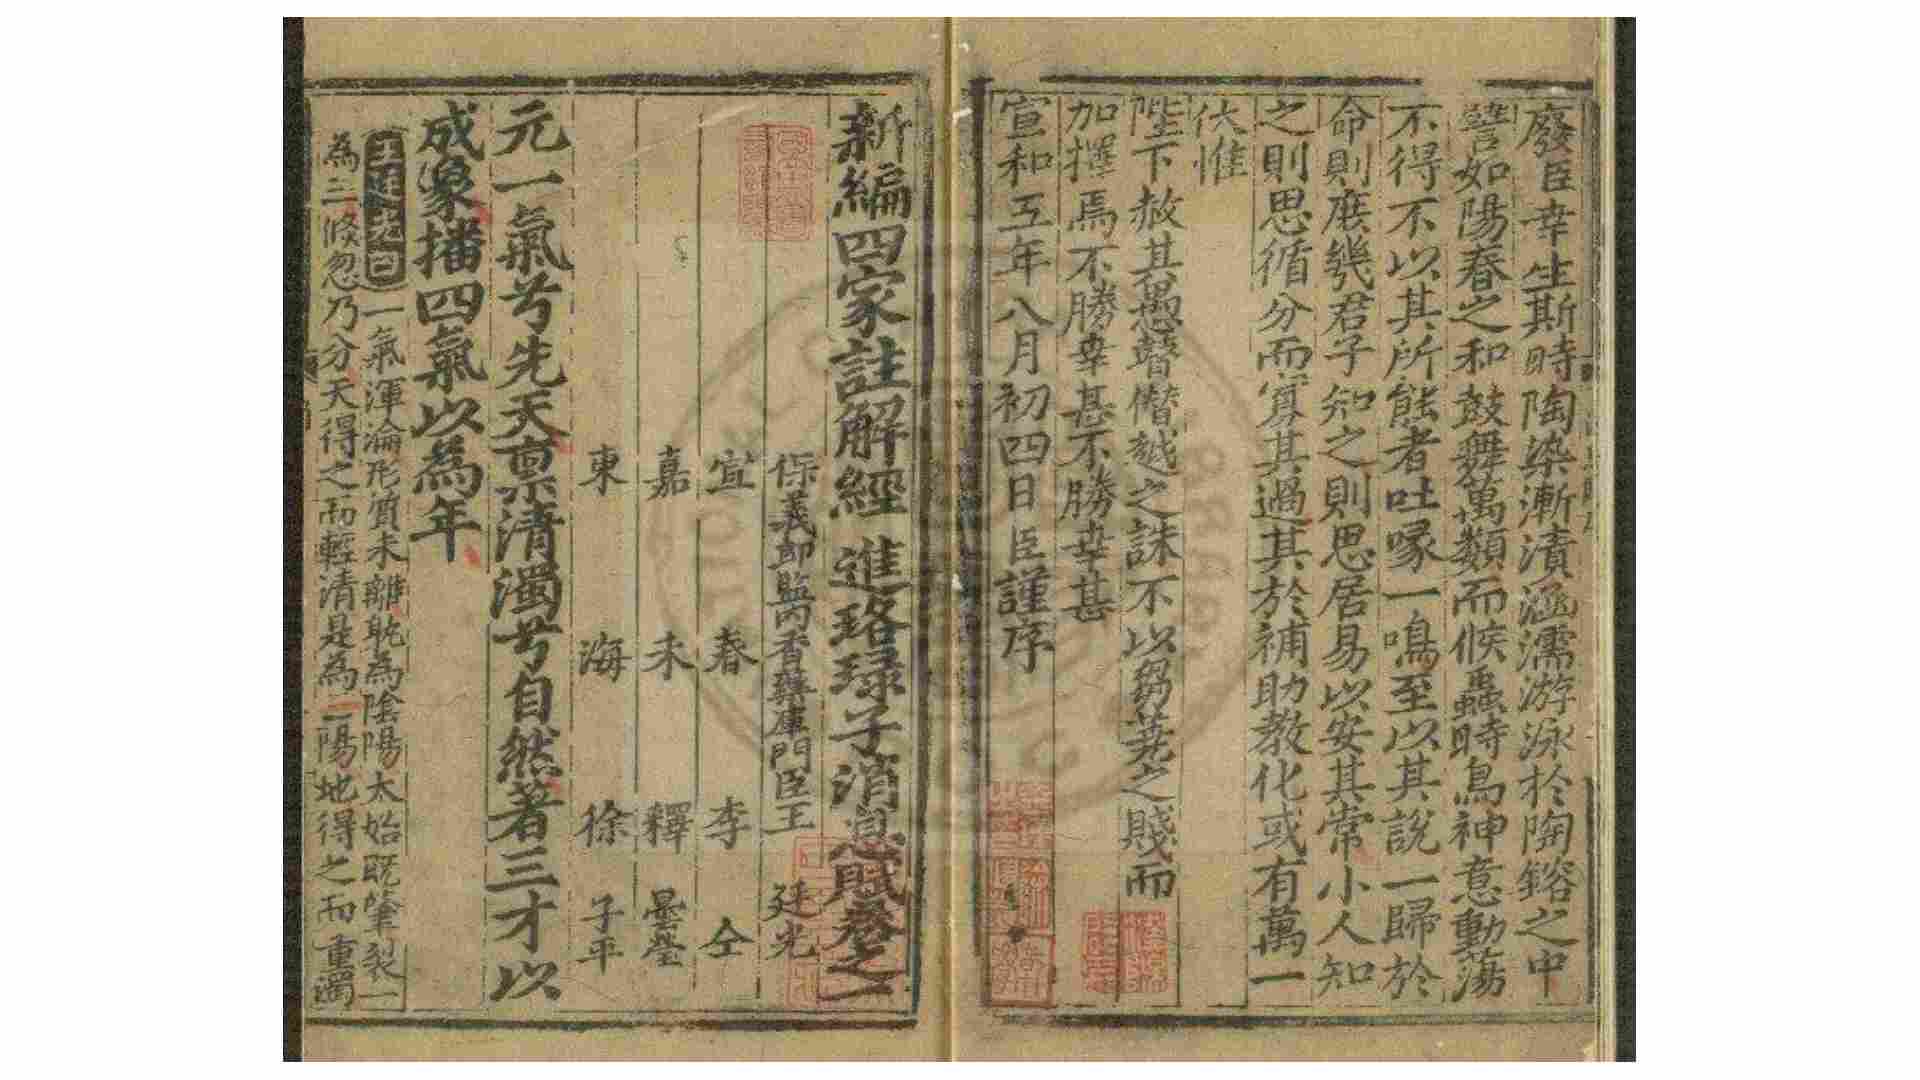 廢臣幸生斯時陶染漸漬涵濡游泳於陶鎔之中
譬如陽春之和鼓舞萬類而候蟲時鳥神意動蕩
不得不以其所能者吐喙一鳴至以其說一歸於
命則庻幾君子知之則思居易以安其常小人知
之則思循分而寡其過其於補助教化或有萬一
伏惟
陛下赦其愚瞽僭越之誅不以芻蕘之賤而
加擇焉不勝幸甚不勝幸甚
宣和五年八月初四日臣謹序
新編四家註解經進珞琭子消息賦卷之一
保義郎監內香藥庫門臣王廷光
宜春李仝
嘉禾釋曇瑩
東海徐子平
元一氣兮先天禀清濁兮自然著三才以
成象播四氣以為年
王廷光曰一氣渾淪形質未離孰為陰陽太始既肇裂一
為二倐忽乃分天得之而輕清是為一陽地得之而重濁